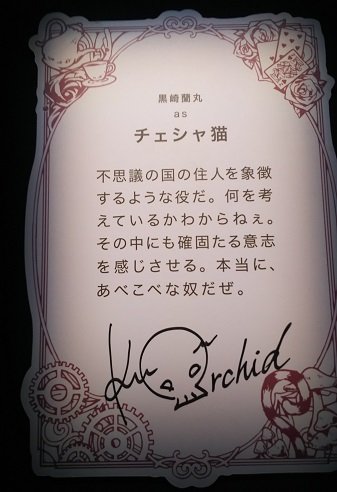 黒崎蘭丸
as
チェシャ猫
不思議の国の住人を象徴
するような役だ。何を考
えているかわからねぇ。
その中にも確固たる意志
を感じさせる。本当に、
あべこべな奴だぜ。